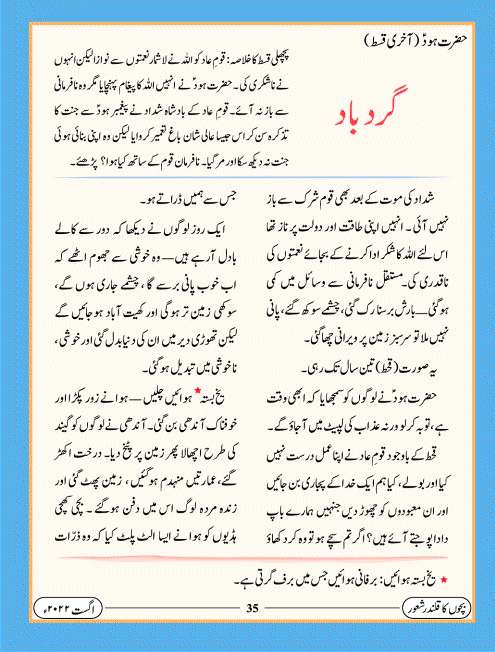 حضرت ہودؑ (آخری قسط)
گرد باد
پچھلی قسط کا خلاصہ: قومِ عاد کو اللہ نے لاشمار نعمتوں سے نوازا لیکن انہوں
نے ناشکری کی۔ حضرت ہودؑ نے انہیں اللہ کا پیغام پہنچایا مگر وہ نافرمانی
سے باز نہ آئے۔ قومِ عاد کے بادشاہ شداد نے پیغمبر ہودؑ سے جنت کا
تذکرہ سن کر اس جیسا عالی شان باغ تعمیر کروایا لیکن وہ اپنی بنائی ہوئی
جنت نہ دیکھ سکا اور مر گیا۔ نافرمان قوم کے ساتھ کیا ہوا؟ پڑھئے۔
شداد کی موت کے بعد بھی قوم شرک سے باز
نہیں آئی۔ انہیں اپنی طاقت اور دولت پر ناز تھا
اس لئے اللہ کا شکر ادا کرنے کے بجائے نعمتوں کی
ناقدری کی۔ مستقل نافرمانی سے وسائل میں کمی
ہوگئی — بارش برسنا رک گئی، چشمے سوکھ گئے، پانی
نہیں ملا تو سرسبز زمین پر ویرانی چھا گئی۔
یہ صورت (قحط) تین سال تک رہی۔
حضرت ہودؑ نے لوگوں کو سمجھایا کہ ابھی وقت
ہے، توبہ کر لو ورنہ عذاب کی لپیٹ میں آجاؤ گے۔
قحط کے باوجود قومِ عاد نے اپنا عمل درست نہیں
کیا اور بولے، کیا ہم ایک خدا کے پجاری بن جائیں
اور ان معبودوں کو چھوڑ دیں جنہیں ہمارے باپ
دادا پوجتے آئے ہیں؟ اگر تم سچے ہو تو وہ کر دکھاؤ
جس سے ہمیں ڈراتے ہو۔
ایک روز لوگوں نے دیکھا کہ دور سے کالے
بادل آرہے ہیں — وہ خوشی سے جھوم اٹھے کہ
اب خوب پانی برسے گا، چشمے جاری ہوں گے،
سوکھی زمین تر ہوگی اور کھیت آباد ہوجائیں گے
لیکن تھوڑی دیر میں ان کی دنیا بدل گئی اور خوشی،
ناخوشی میں تبدیل ہوگئی۔
یخ بستہ* ہوائیں چلیں — ہوا نے زور پکڑا اور
خوفناک آندھی بن گئی۔ آندھی نے لوگوں کو گیند
کی طرح اچھالا پھر زمین پر پٹخ دیا۔ درخت اکھڑ
گئے، عمارتیں منہدم ہوگئیں، زمین پھٹ گئی اور
زندہ مردہ لوگ اس میں دفن ہوگئے۔ بچی کھچی
ہڈیوں کو ہوا نے ایسا الٹ پلٹ کیا کہ وہ ذرّات
* یخ بستہ ہوائیں: برفانی ہوائیں جس میں برف گرتی ہے۔
بچوں کا قلندر شعور
35
اگست ۲۰۲۲ء